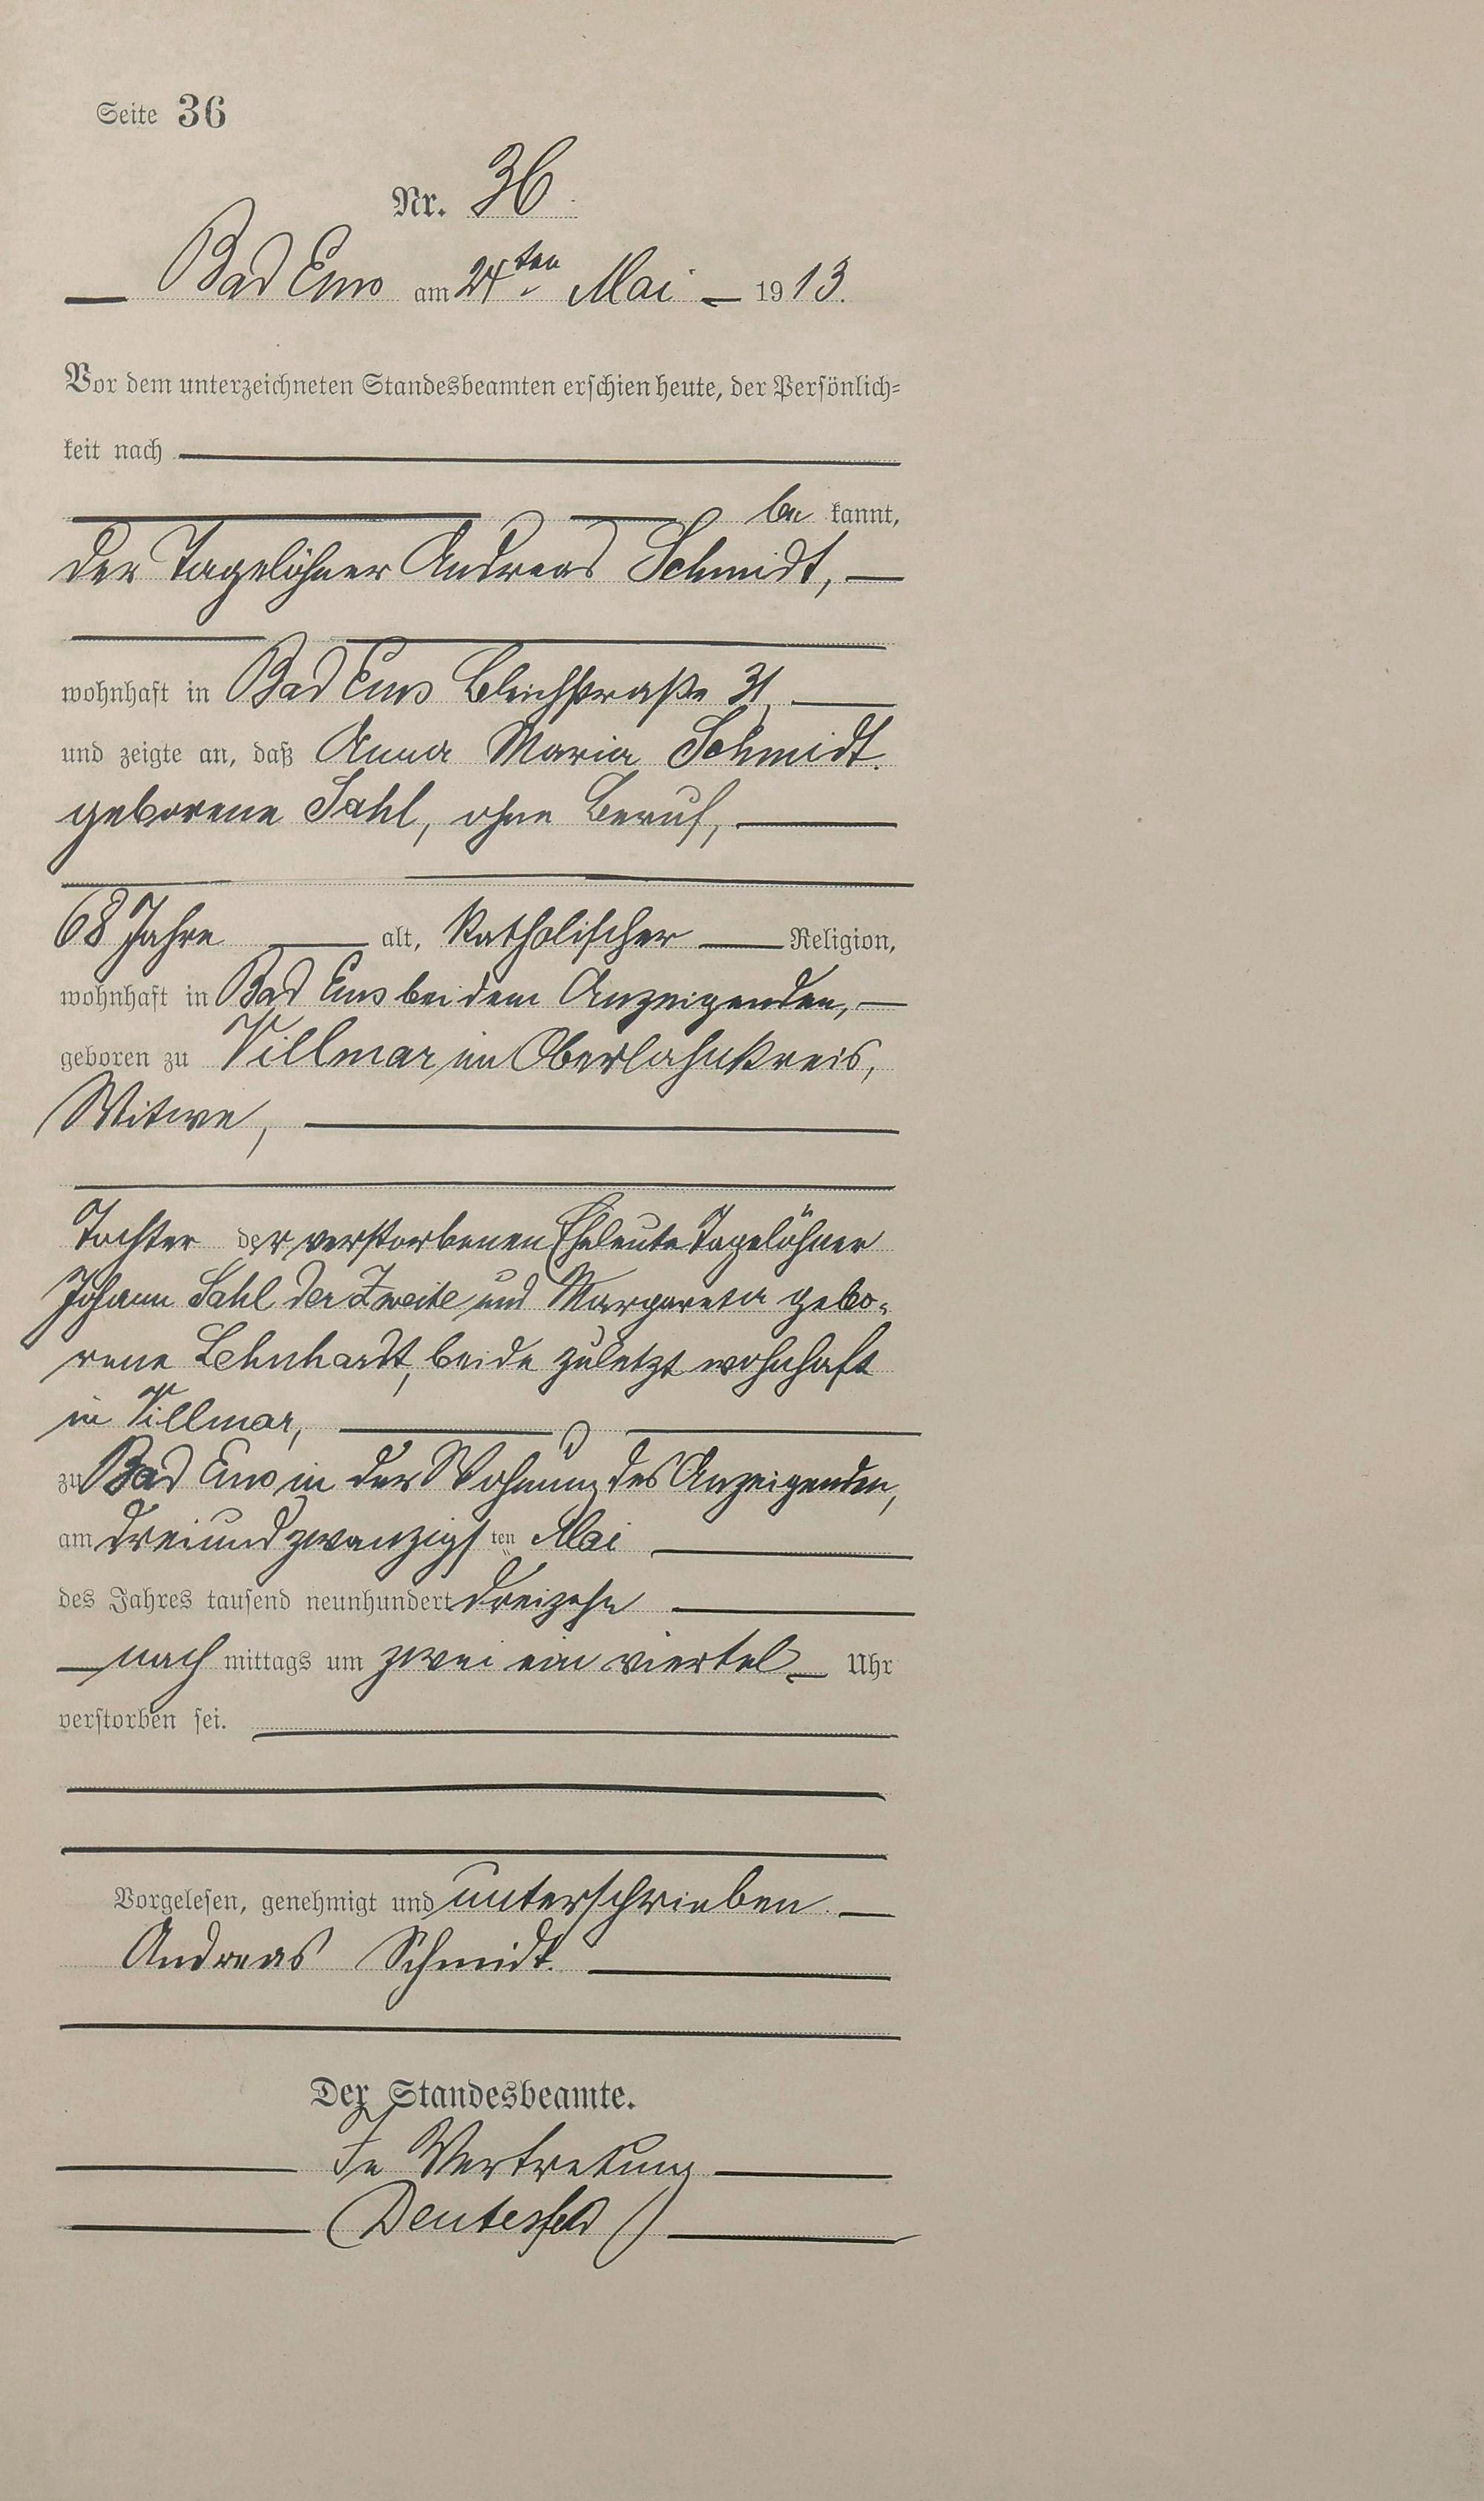 Seite 36
Nr. 36
Bad Ems am 24ten Mai 1913.
Vor dem unterzeichneten Standesbeamten erschien heute, der Persönlich-
keit nach
be kannt,
der Tagelöhner Andreas Schmidt,
wohnhaft in Bad Ems Bleichstraße 31,
und zeigte an, daß Anna Maria Schmidt
geborene Sahl, ohne Beruf,
68 Jahre alt, katholischer Religion,
wohnhaft in Bad Ems bei dem Anzeigenden,
geboren zu Villmar im Oberlahnkreis,
Witwe,
Tochter der verstorbenen Eheleute Tagelöhner
Johann Sahl der Zweite und Margareta gebo-
rene Lehnhardt, beide zuletzt wohnhaft
in Villmar,
zu Bad Ems in der Wohnung des Anzeigenden,
am dreiundzwanzigsten Mai
des Jahres tausend neunhundert dreizehn
nach mittags um zwei ein viertel Uhr
verstorben sei.
Vorgelesen, genehmigt und unterschrieben.
Andreas Schmidt.
Der Standesbeamte.
In Vertretung